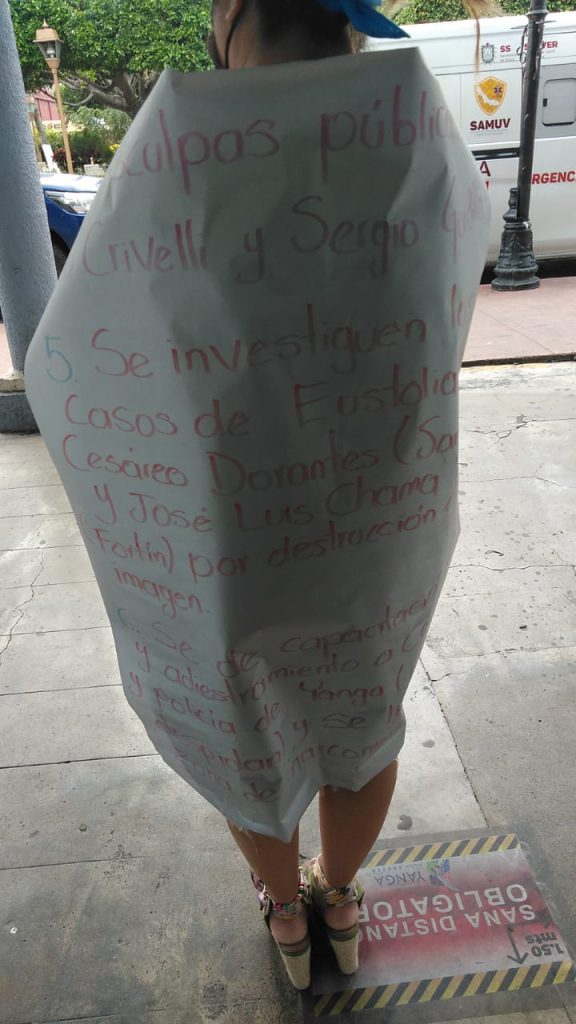 SS
SAMUV
culpas públic
Crivelli y Sergio
5. Se investiguen
casos de Eustolia
Cesáreo Dorantes (San
y José Luis Chama
Fortín) por destrucción
imagen.
6. Se de capacitaci
y adiestramiento a
y policía de Yanga
despidan) y se
zona de
YANGA
SANA DISTAN
OBLIGATOR
1.50
mts